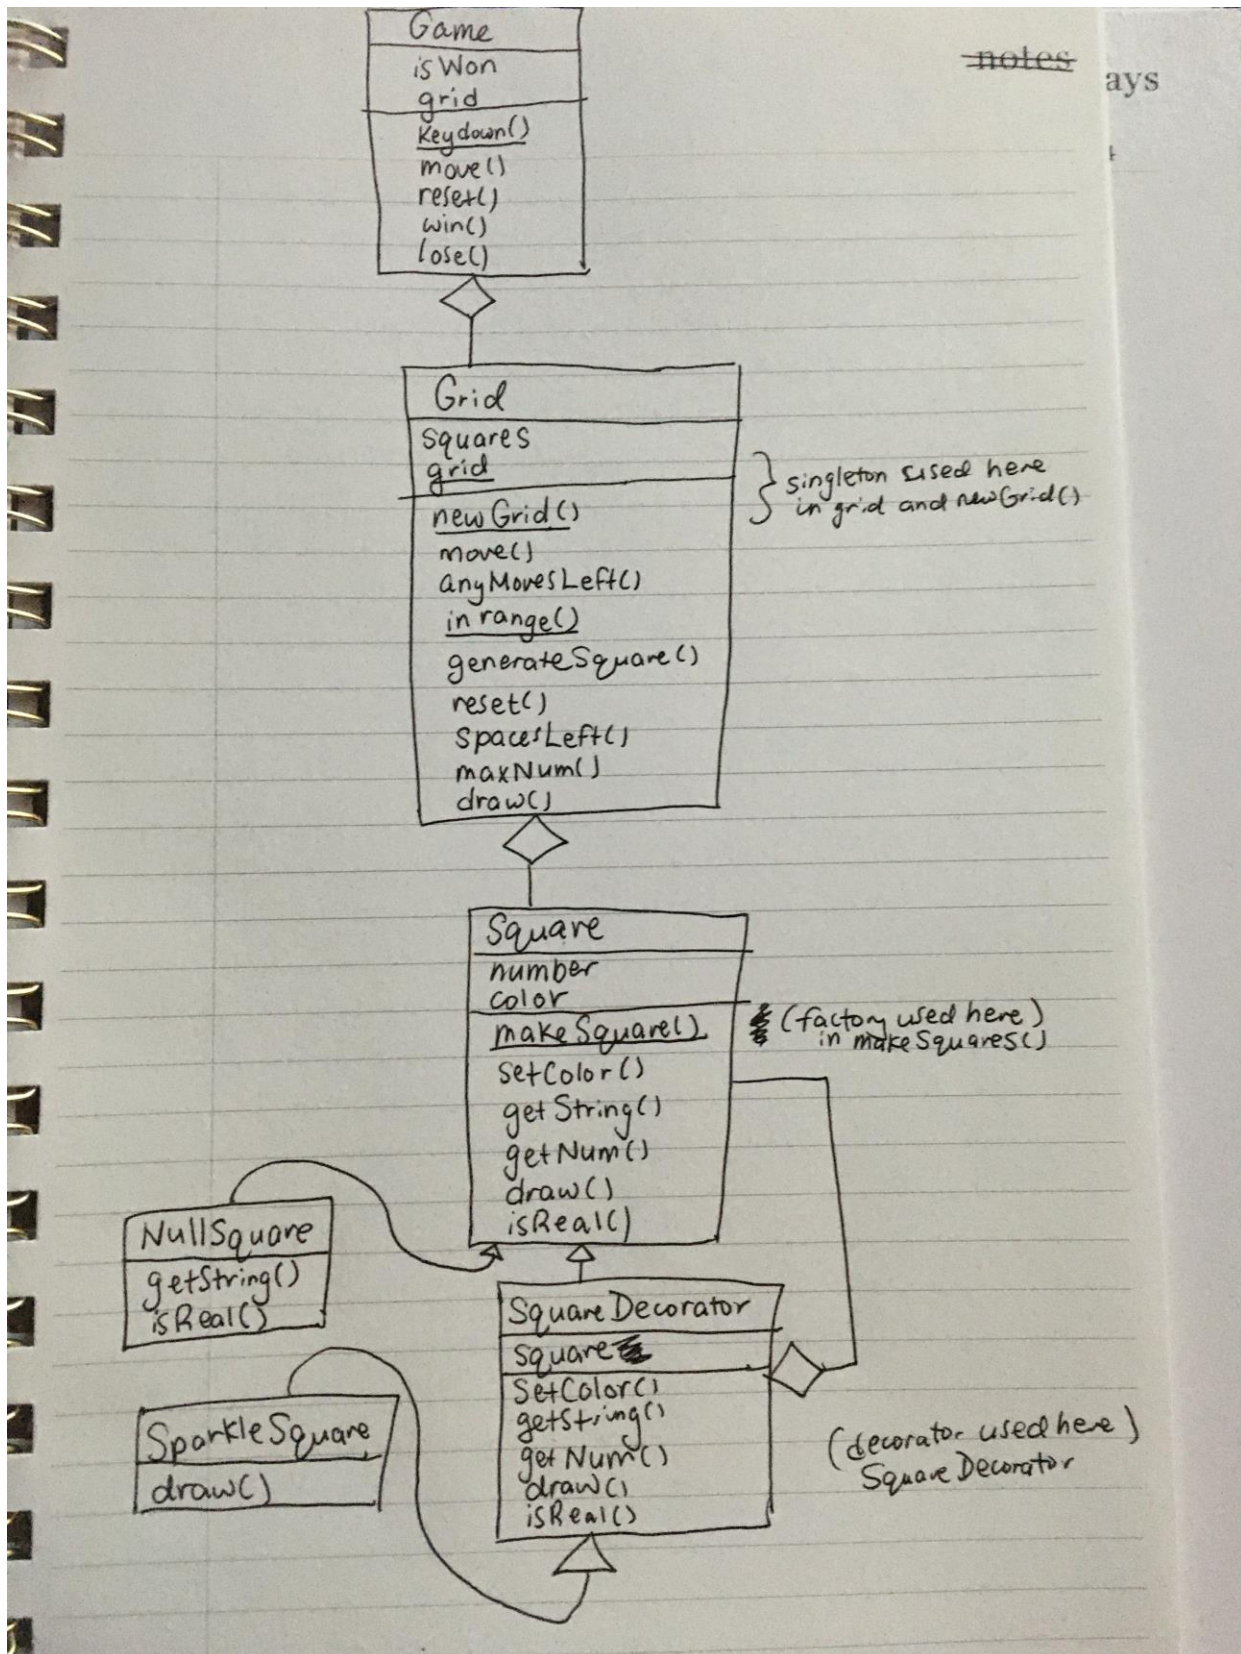 Game
isWon
grid
Keydown()
move()
reset()
win()
lose()
notes
ays
Grid
squares
grid
newGrid()
move()
anyMovesLeft()
inrange()
generateSquare()
reset()
spacesLeft()
maxNum()
draw()
singleton used here
in grid and newGrid()
Square
number
color
makeSquare()
setColor()
getString()
getNum()
draw()
isReal()
(factory used here)
in makeSquares()
NullSquare
getString()
isReal()
SquareDecorator
square
SetColor()
getString()
getNum()
draw()
isReal()
SparkleSquare
draw()
(decorator used here)
SquareDecorator